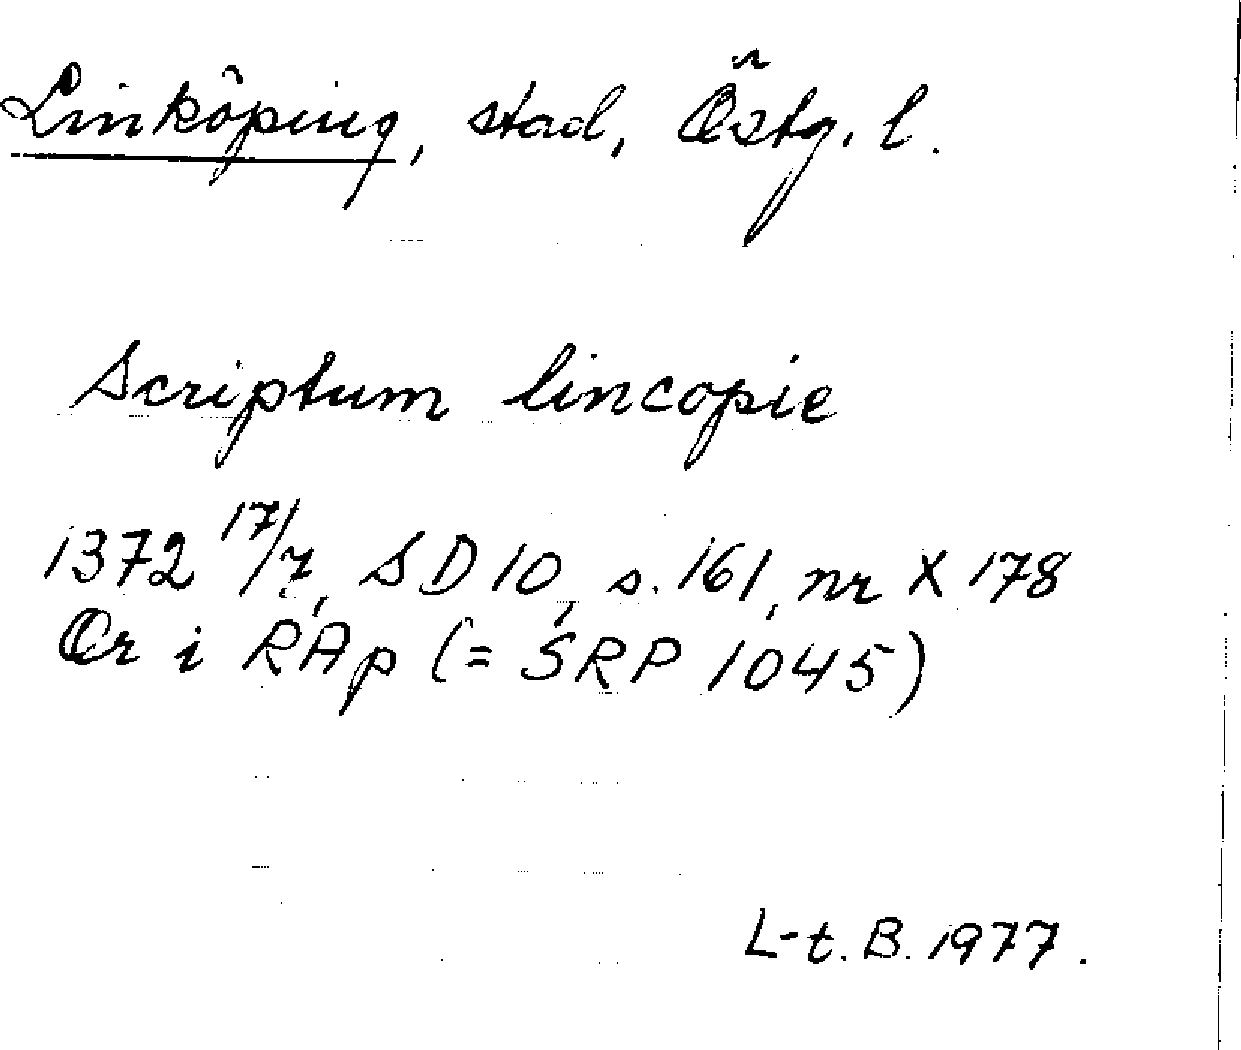 Linköping, stad, Östg. l.
Scriptum lincopie
1372 17/7, SD 10, s. 161, nr X 178
Or i RAp (= SRP 1045)
L-t. B. 1977.